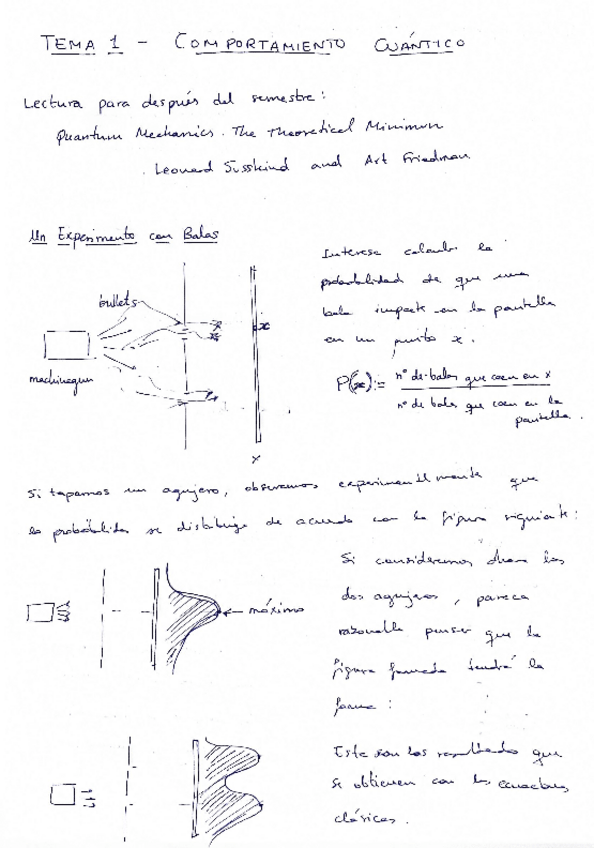 TEMA 1 - COMPORTAMIENTO CUÁNTICO
Lectura para después del semestre:
Quantum Mechanics. The Theoretical Minimum
. Leonard Susskind and Art Friedman
Un Experimento con Balas
bullets
machinegun
x
x
Interesa calcular la
probabilidad de que una
bala impacte en la pantalla
en un punto x.
P(x):= nº de balas que caen en x
nº de balas que caen en la
pantalla.
Si tapamos un agujero, observamos experimentalmente que
la probabilidad se distribuye de acuerdo con la figura siguiente:
máximo
Si consideramos ahora los
dos agujeros, parece
razonable pensar que la
figura formada tendrá la
forma:
Este son los resultados que
se obtienen con las ecuaciones
clásicas.